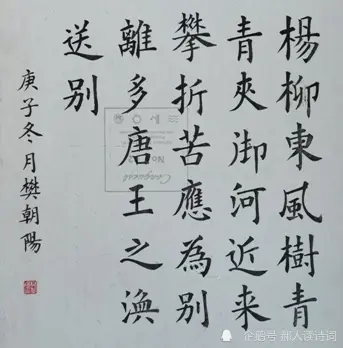 楊柳東風樹青
青夾御河近来
攀折苦應為別
離多唐王之渙
送别
庚子冬月樊朝陽
企鹅号 敲人读诗词